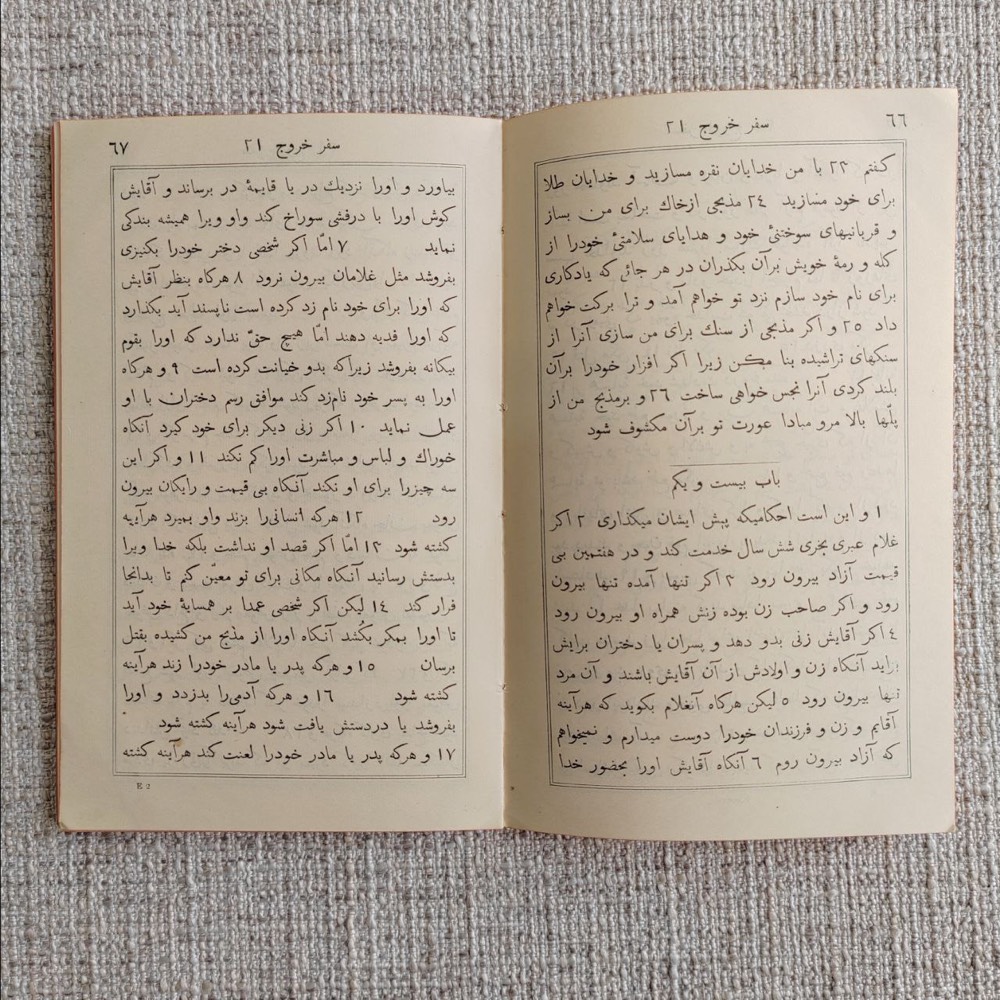 ٦٦
سفر خروج ٢١
كفتم ٢٣ با من خدایان نقره مسازید و خدایان طلا
برای خود مسازید ٢٤ مذبحی ازخاك برای من بساز
و قربانیهای سوختنیٔ خود و هدایای سلامتیٔ خودرا از
كله و رمهٔ خویش برآن بكذران در هر جائی كه یادكاری
برای نام خود سازم نزد تو خواهم آمد و ترا بركت خواهم
داد ٢٥ و اكر مذبحی از سنك برای من سازی آنرا از
سنكهای تراشیده بنا مكن زیرا اكر افزار خودرا برآن
بلند كردی آنرا نجس خواهی ساخت ٢٦ و برمذبح من از
پلّها بالا مرو مبادا عورت تو برآن مكشوف شود
باب بیست و یكم
١ و این است احكامیكه پیش ایشان میكذاری ٢ اكر
غلام عبری بخری شش سال خدمت كند و در هفتمین بی
قیمت آزاد بیرون رود ٣ اكر تنها آمده تنها بیرون
رود و اكر صاحب زن بوده زنش همراه او بیرون رود
٤ اكر آقایش زنی بدو دهد و پسران یا دختران برایش
بزاید آنكاه زن و اولادش از آن آقایش باشند و آن مرد
تنها بیرون رود ٥ لیكن هركاه آنغلام بكوید كه هرآینه
آقایم و زن و فرزندان خودرا دوست میدارم و نمیخواهم
كه آزاد بیرون روم ٦ آنكاه آقایش اورا بحضور خدا
سفر خروج ٢١
٦٧
بیاورد و اورا نزدیك در یا قایمهٔ در برساند و آقایش
كوش اورا با درفشی سوراخ كند واو ویرا همیشه بندكی
نماید ٧ امّا اكر شخصی دختر خودرا بكنیزی
بفروشد مثل غلامان بیرون نرود ٨ هركاه بنظر آقایش
كه اورا برای خود نام زد كرده است ناپسند آید بكذارد
كه اورا فدیه دهند امّا هیچ حقّ ندارد كه اورا بقوم
بیكانه بفروشد زیراكه بدو خیانت كرده است ٩ و هركاه
اورا به پسر خود نامزد كند موافق رسم دختران با او
عمل نماید ١٠ اكر زنی دیكر برای خود كیرد آنكاه
خوراك و لباس و مباشرت اورا كم نكند ١١ و اكر این
سه چیزرا برای او نكند آنكاه بی قیمت و رایكان بیرون
رود ١٢ هركه انسانی‌را بزند واو بمیرد هرآینه
كشته شود ١٣ امّا اكر قصد او نداشت بلكه خدا ویرا
بدستش رسانید آنكاه مكانی برای تو معیّن كنم تا بدانجا
فرار كند ١٤ لیكن اكر شخصی عمدا بر همسایهٔ خود آید
تا اورا بمكر بكُشد آنكاه اورا از مذبح من كشیده بقتل
برسان ١٥ و هركه پدر یا مادر خودرا زند هرآینه
كشته شود ١٦ و هركه آدمی‌را بدزدد و اورا
بفروشد یا دردستش یافت شود هرآینه كشته شود
١٧ و هركه پدر یا مادر خودرا لعنت كند هرآینه كشته
E 2